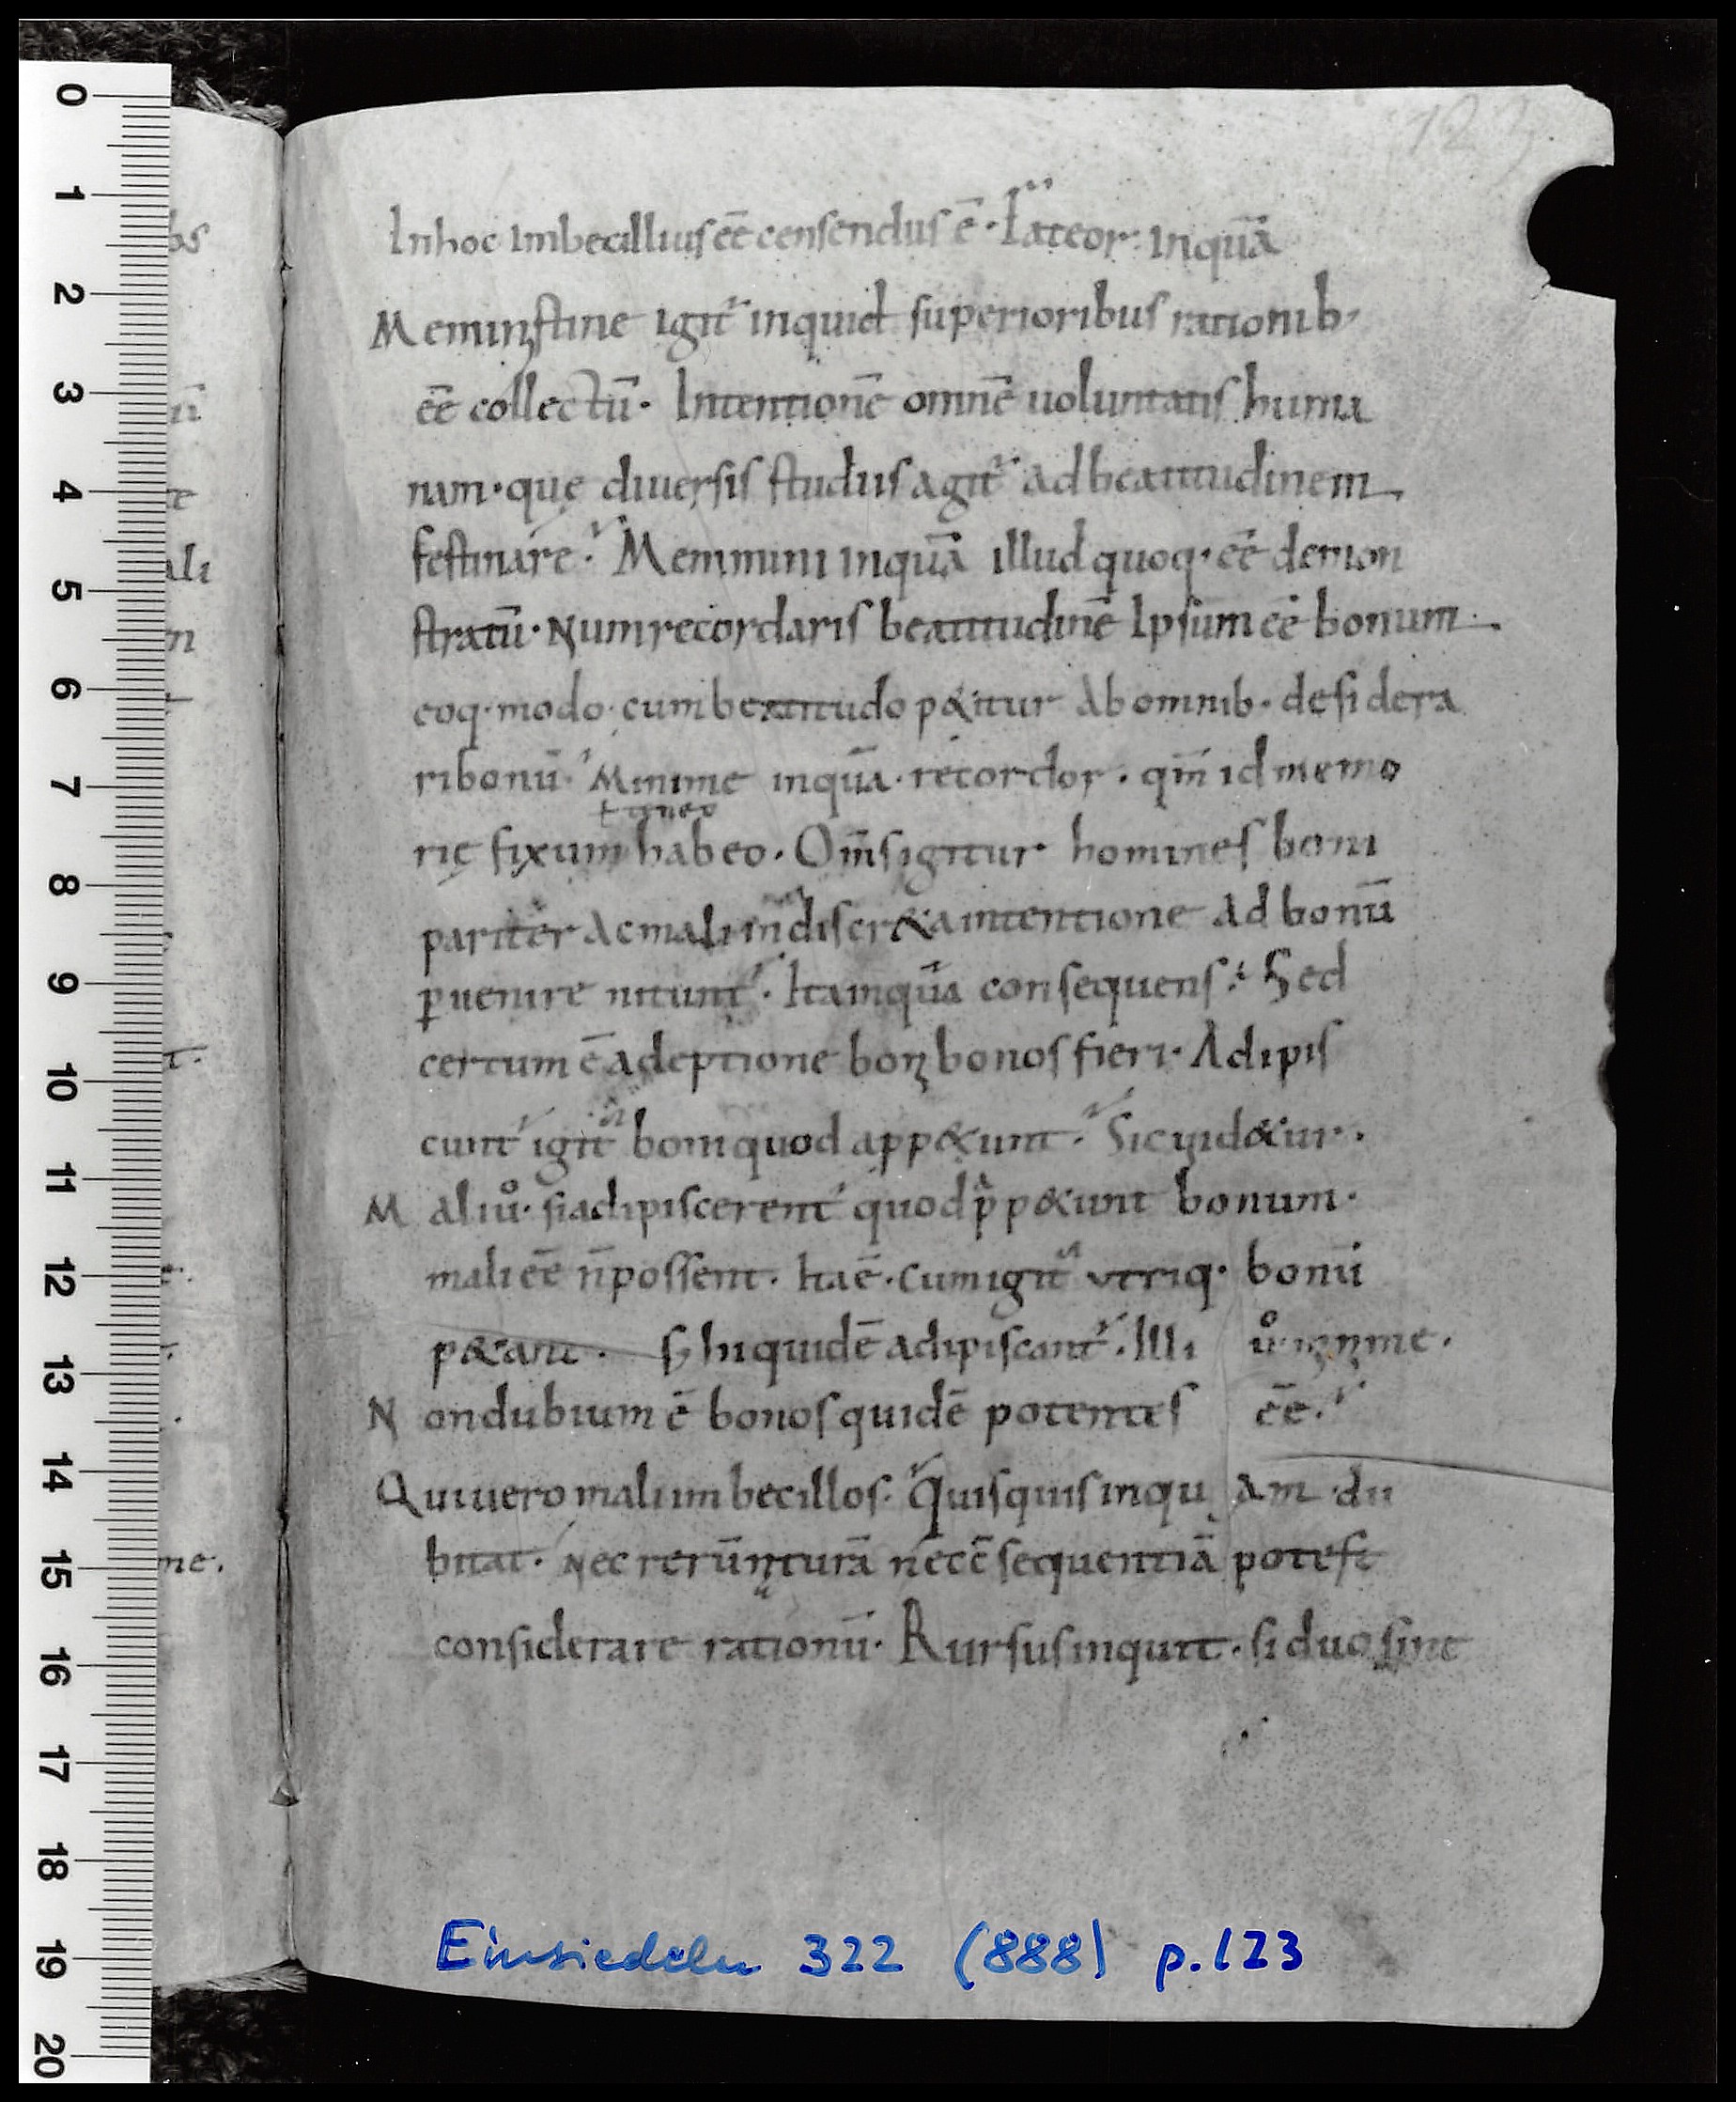 127
Inhoc Imbecillius eē censendus ē · Fateor · inquā
Meministine igit᷑ inquid superioribus rationib·
eē collectū · Intentionē omnē uoluntatis huma
nam · quę diuersis studiis agit᷑ ad beatitudinem
festinare · Memmini inquā illud quoq· eē demon
stratū · Num recordaris beatitudinē Ipsum eē bonum ·
eoq· modo · cum beatitudo p&itur Ab omnib· desidera
ri bonū · Minime inquā · recordor · qm̄ id memo
ł teneo
rię fixum habeo · Om̄s igitur homines boni
pariter Ac mali indiscr&a intentione Ad bonū
ꝑuenire nitunt᷑ · Ita inquā consequens · Sed
certum ē adeptione bonį bonos fieri · Adipis
cunt᷑ igit᷑ boni quod app&unt · Sic uid&ur ·
Mali uº · si adipiscerent᷑ quod app&unt bonum ·
mali eē n̄ possent · Ita ē · Cum igit᷑ utriq· bonū
p&ant · S; hi quidē adipiscant᷑ · Illi uº minime ·
Non dubium ē bonos quidē potentes eē ·
Qui uero mali imbecillos · Quisquis inquam · du
bitat · Nec rerū naturā nec c̄sequentiā potest
considerare rationū · Rursus inquit · si duo sint
bs
ū
te
ali
m
t
t ·
ne ·
0
1
2
3
4
5
6
7
8
9
10
11
12
13
14
15
16
17
18
19
20
Einsiedeln 322 (888) p. 123